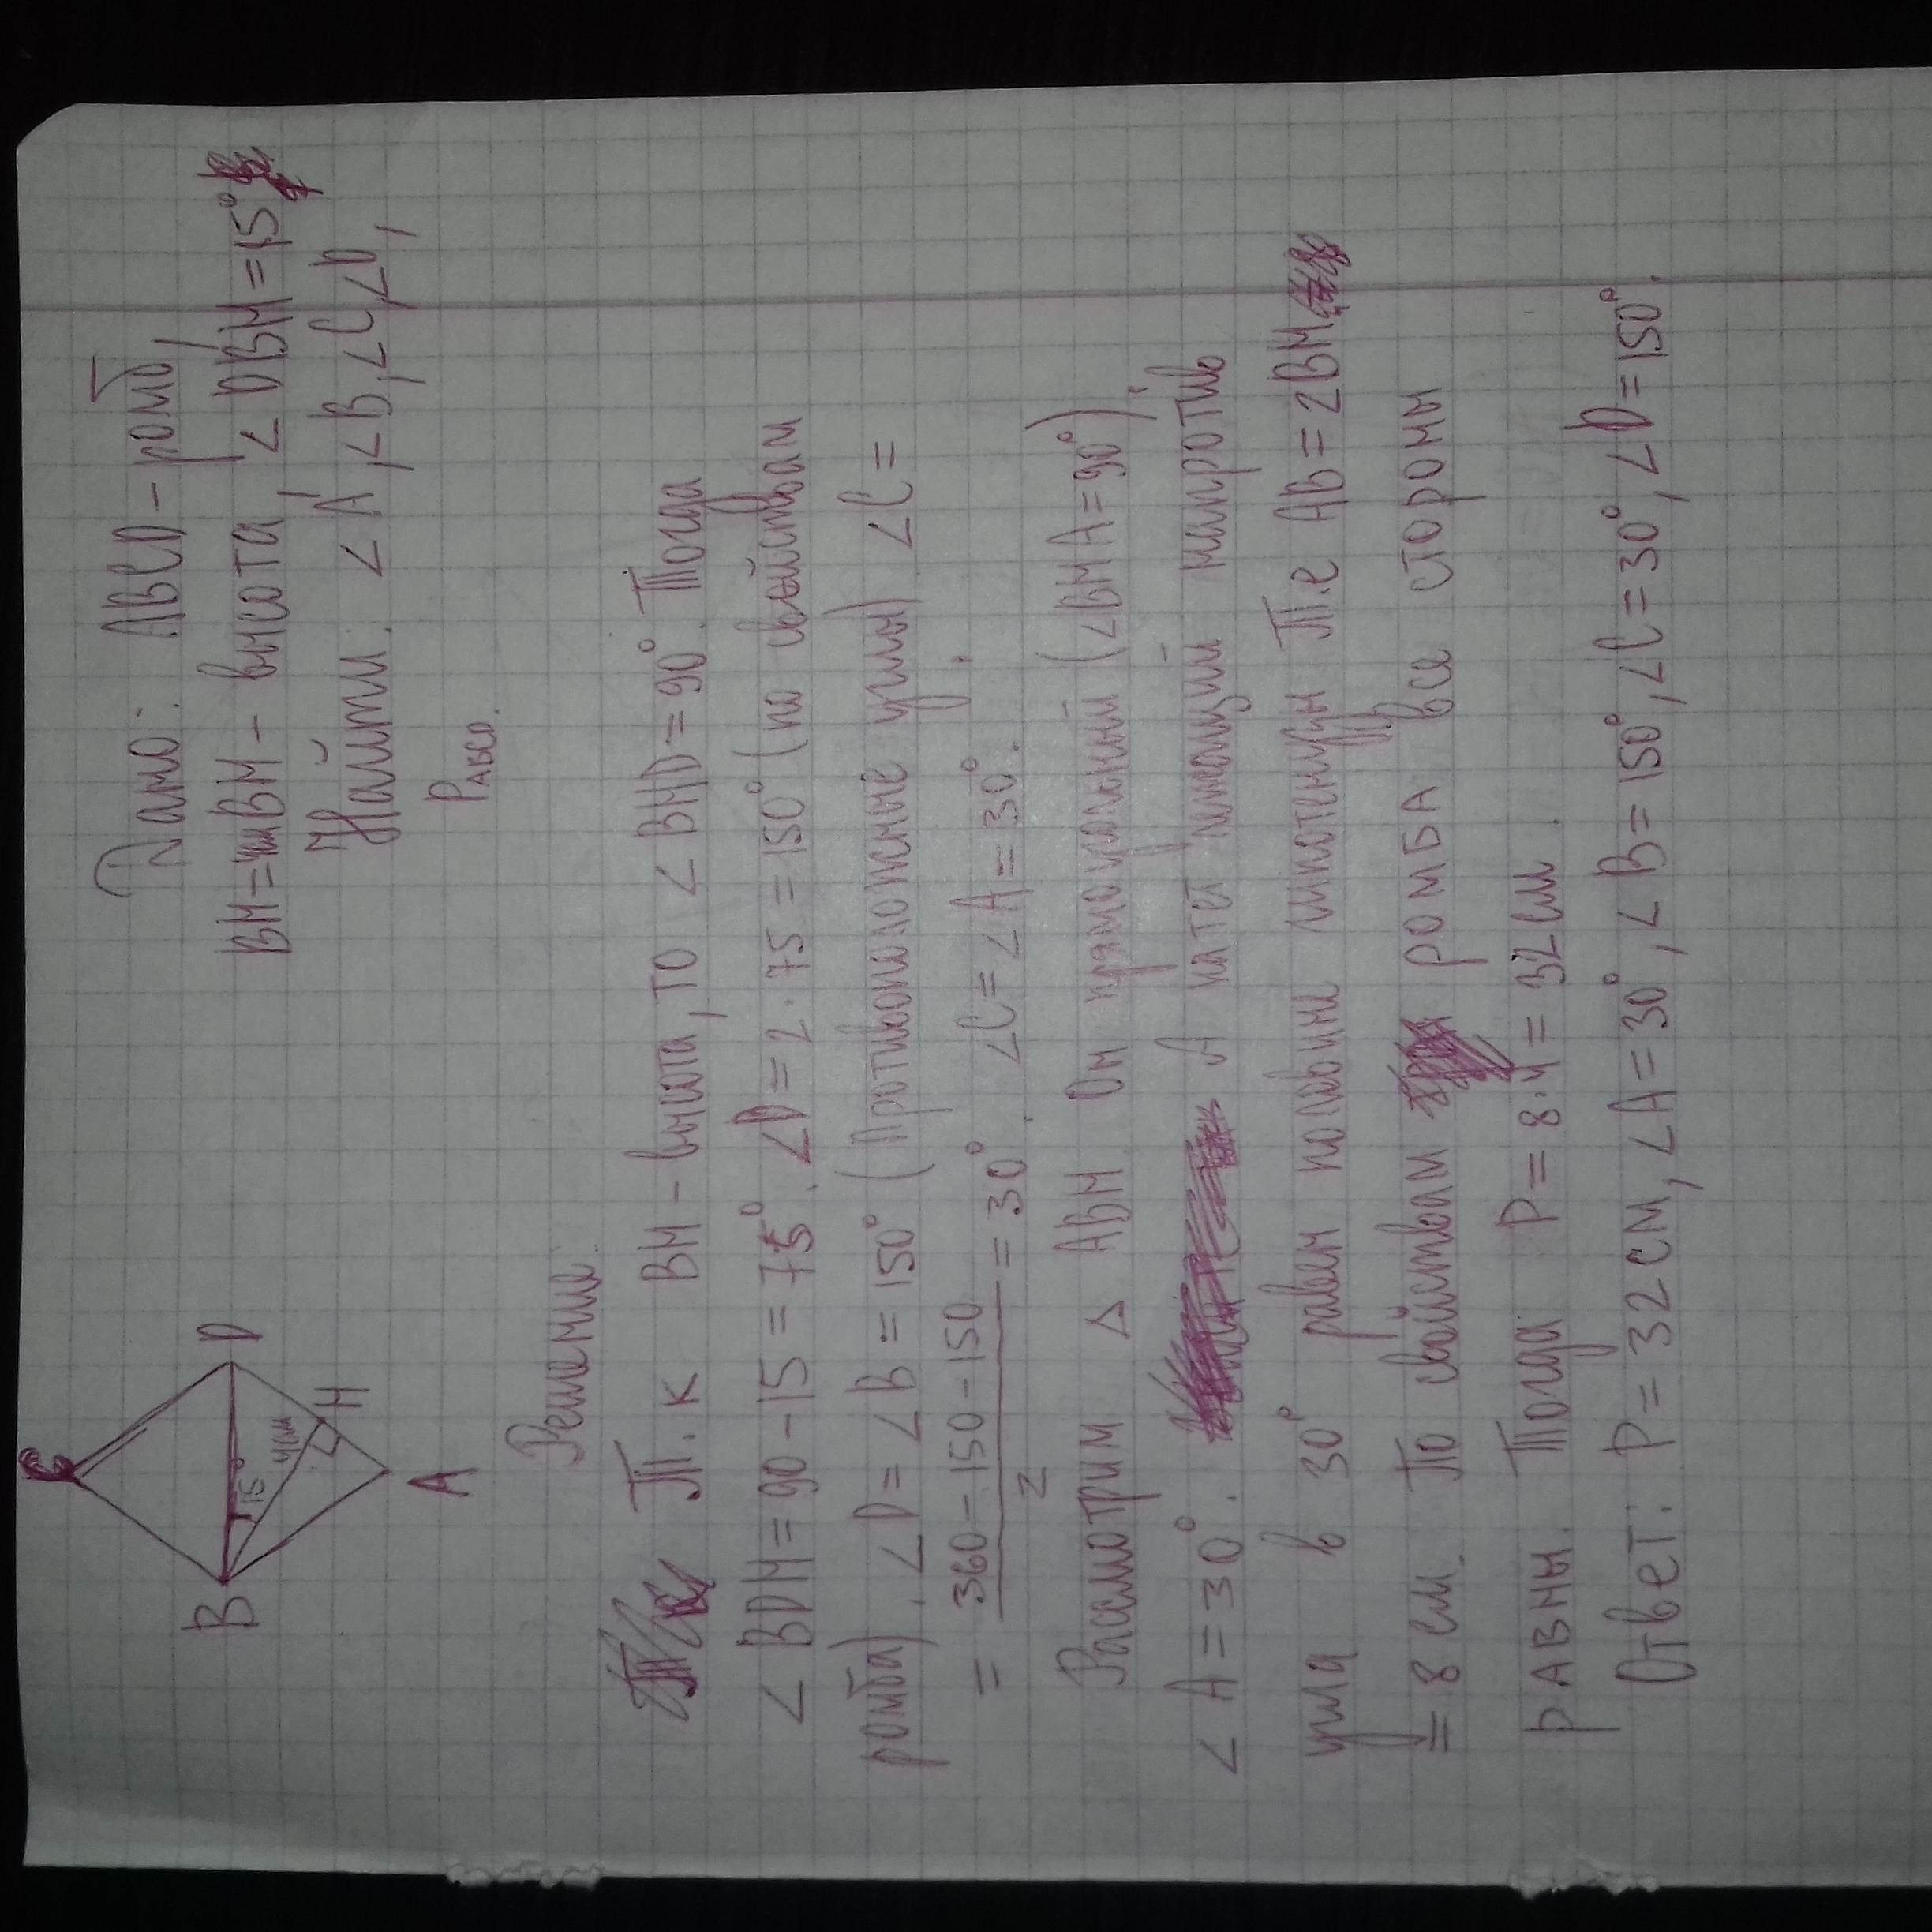 Дано: ABCD - ромб,
BM=4см BM - высота, ∠DBM=15°
Найти: ∠A, ∠B, ∠C, ∠D,
P ABCD.
C
B
D
15°
4см
M
A
Решение:
Т.к BM - высота, то ∠BMD=90°. Тогда
∠BDM=90-15=75°. ∠D=2·75=150° (по свойствам
ромба). ∠D=∠B=150° (Противоположные углы) ∠C=
= (360-150-150)/2 = 30°. ∠C=∠A=30°.
Рассмотрим △ ABM. Он прямоугольный (∠BMA=90°),
∠A=30°. А катет лежащий напротив
угла в 30° равен половине гипотенузы Т.е AB=2BM
=8 см. По свойствам ромба все стороны
равны. Тогда P=8·4=32см.
Ответ: P=32см, ∠A=30°, ∠B=150°, ∠C=30°, ∠D=150°.